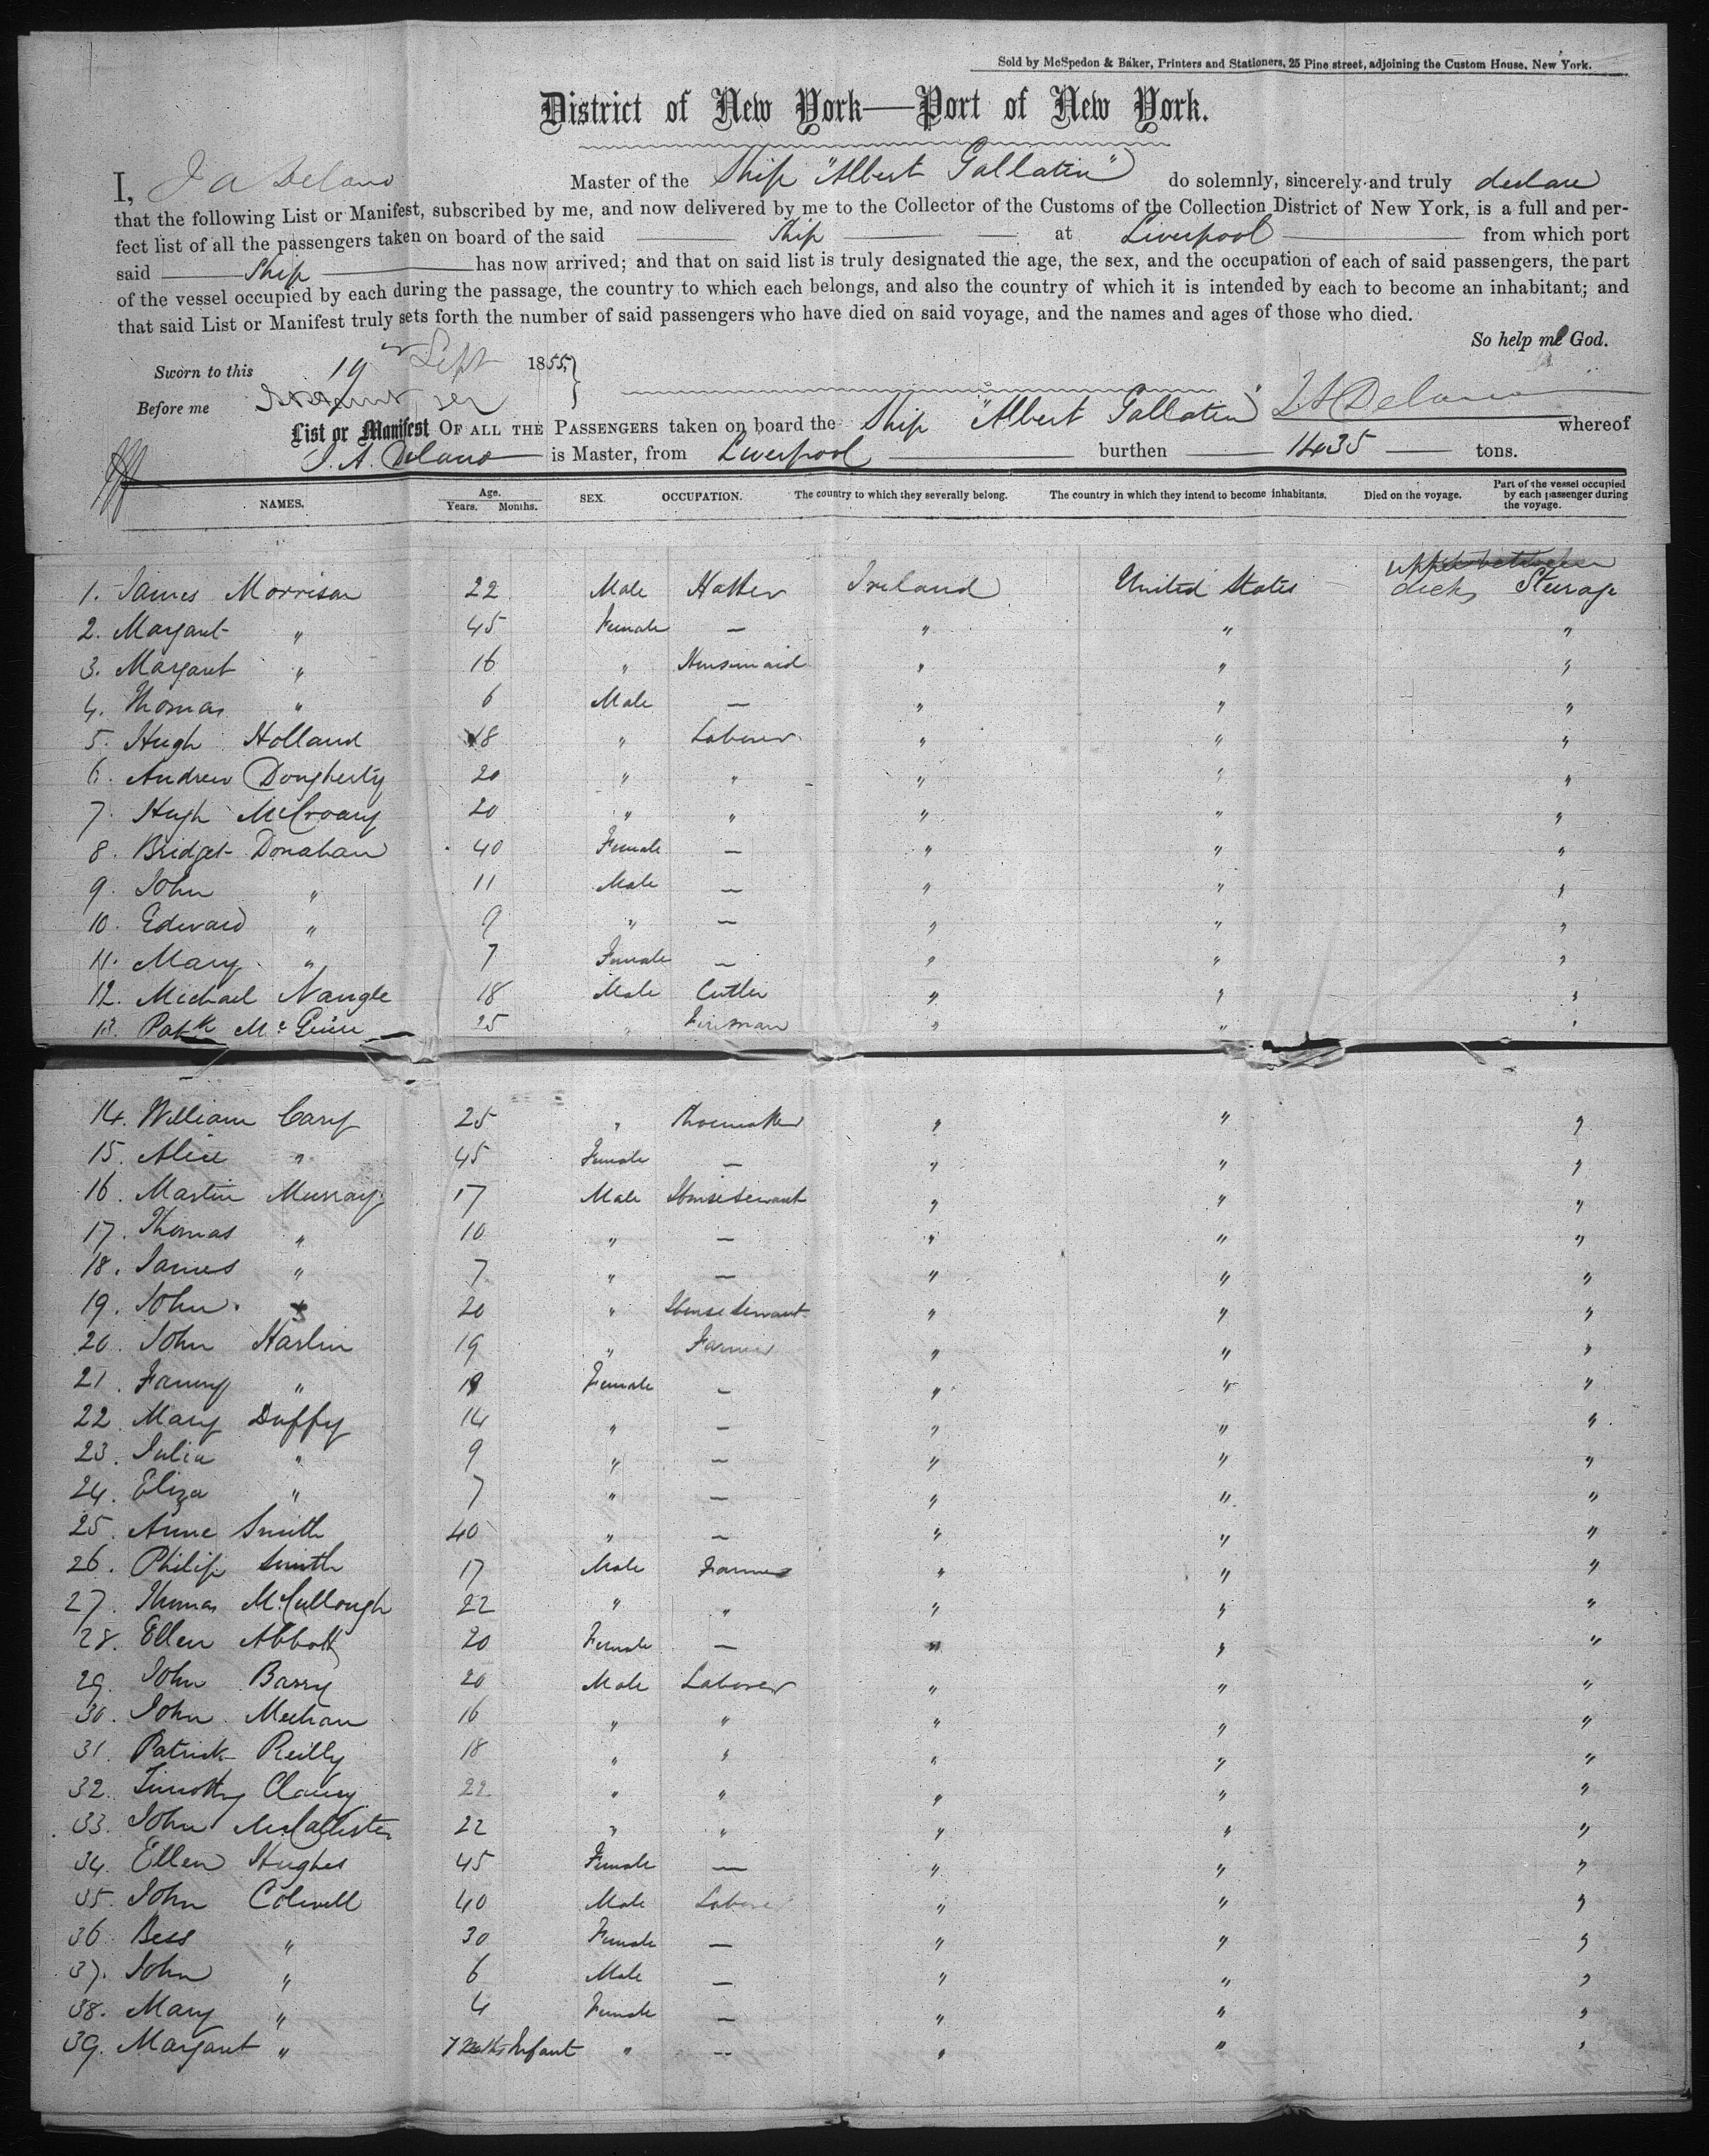 Sold by McSpedon & Baker, Printers and Stationers, 25 Pine street, adjoining the Custom House, New York.
District of New York—Port of New York.
I, J A Delano Master of the Ship "Albert Gallatin" do solemnly, sincerely and truly declare
that the following List or Manifest, subscribed by me, and now delivered by me to the Collector of the Customs of the Collection District of New York, is a full and per-
fect list of all the passengers taken on board of the said Ship at Liverpool from which port
said Ship has now arrived; and that on said list is truly designated the age, the sex, and the occupation of each of said passengers, the part
of the vessel occupied by each during the passage, the country to which each belongs, and also the country of which it is intended by each to become an inhabitant; and
that said List or Manifest truly sets forth the number of said passengers who have died on said voyage, and the names and ages of those who died.
So help me God.
Sworn to this 19 Sept 1855
Before me
J A Delano
List or Manifest OF ALL THE PASSENGERS taken on board the Ship "Albert Gallatin" whereof
J. A. Delano is Master, from Liverpool burthen 1435 tons.
NAMES. Age. Years. Months. SEX. OCCUPATION. The country to which they severally belong. The country in which they intend to become inhabitants. Died on the voyage. Part of the vessel occupied by each passenger during the voyage.
1. James Morrison 22 Male Hatter Ireland United States decks Steerage
2. Margaret " 45 Female — " " "
3. Margaret " 16 " Housemaid " " "
4. Thomas " 6 Male — " " "
5. Hugh Holland 18 " Laborer " " "
6. Andrew Dougherty 20 " " " " "
7. Hugh McCroary 20 " " " " "
8. Bridget Donahan 40 Female — " " "
9. John " 11 Male — " " "
10. Edward " 9 " — " " "
11. Mary " 7 Female — " " "
12. Michael Nangle 18 Male Cutler " " "
13. Patk 25 " Fireman " " "
14. William Cary 25 " Shoemaker " " "
15. Alice " 45 Female — " " "
16. Martin Murray 17 Male House servant " " "
17. Thomas " 10 " — " " "
18. James " 7 " — " " "
19. John " 20 " House servant " " "
20. John Harlin 19 " Farmer " " "
21. Fanny " Female — " " "
22. Mary Duffy 14 " — " " "
23. Julia " 9 " — " " "
24. Eliza " 7 " — " " "
25. Anne Smith 40 " — " " "
26. Philip Smith 17 Male Farmer " " "
27. Thomas McCullough 22 " " " " "
28. Ellen Abbott 20 Female — " " "
29. John Barry 20 Male Laborer " " "
30. John Meehan 16 " " " " "
31. Patrick Reilly 18 " " " " "
32. Timothy Clancy 22 " " " " "
33. John McCallister 22 " " " " "
34. Ellen Hughes 45 Female — " " "
35. John Colwell 40 Male Laborer " " "
36. Bess " 30 Female — " " "
37. John " 6 Male — " " "
38. Mary " 4 Female — " " "
39. Margaret " Infant " — " " "